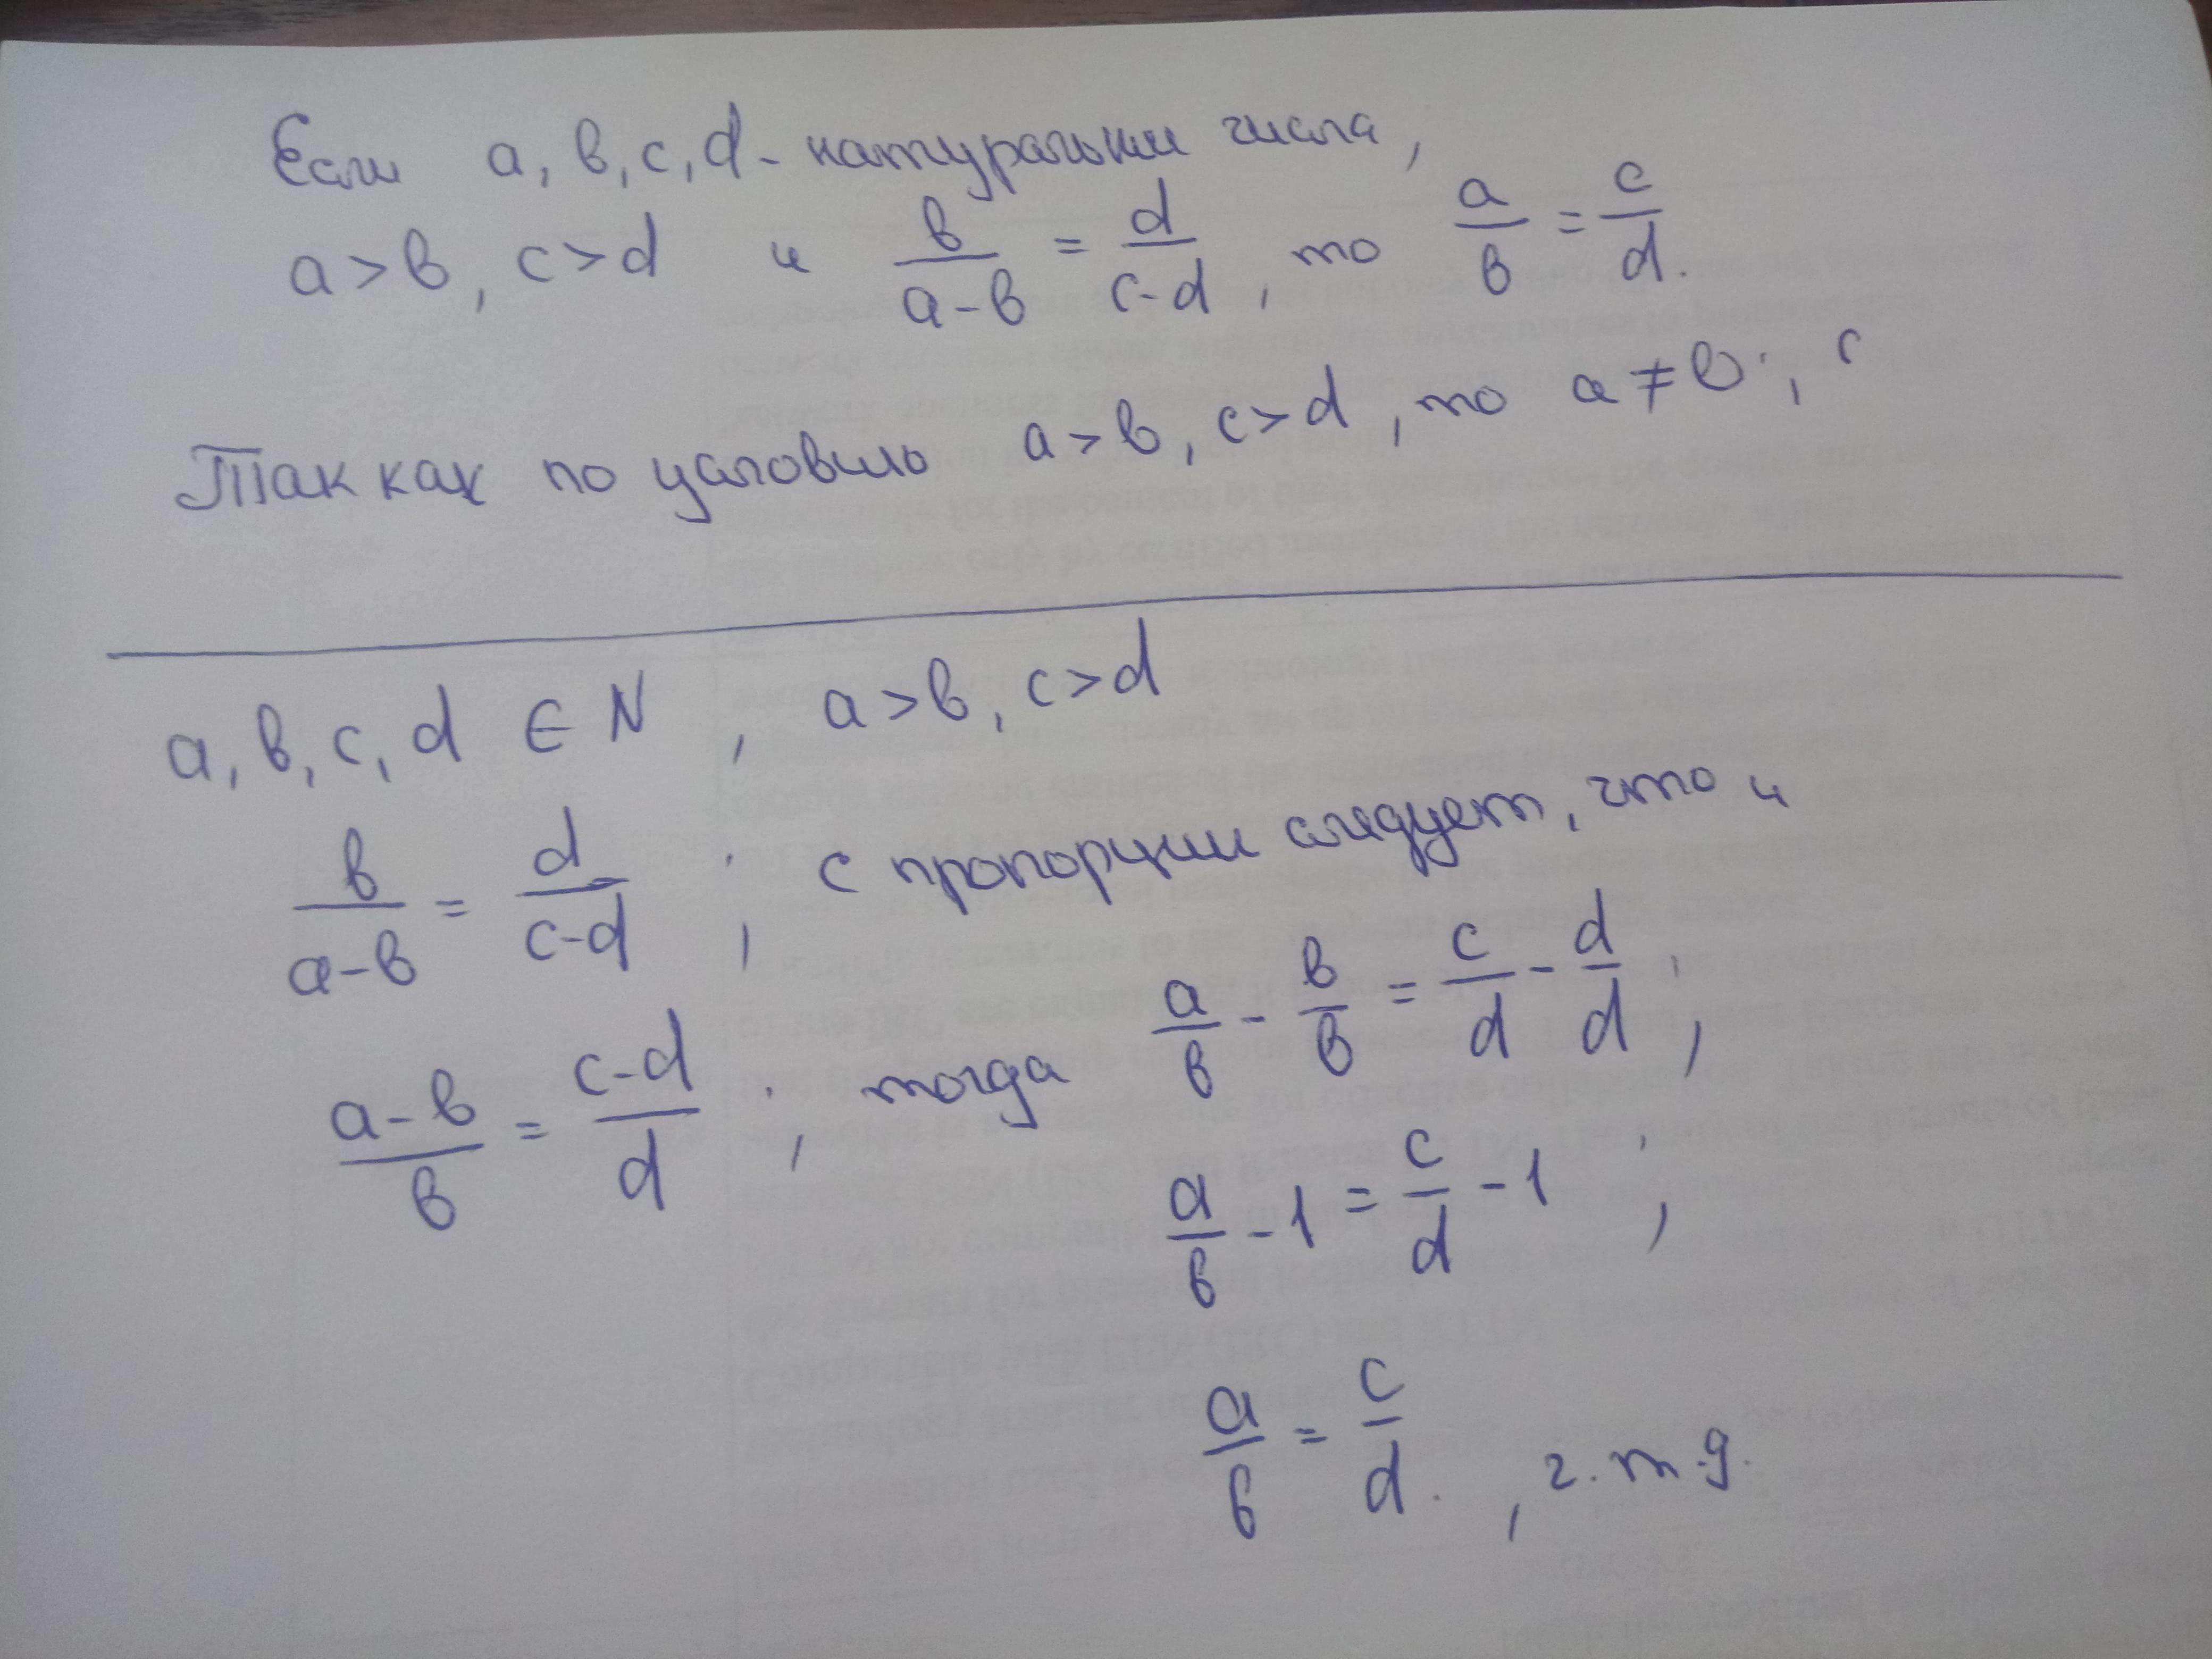 Если a, в, c, d - натуральни числа,
a > в, c > d и в/(a-в) = d/(c-d), то a/в = c/d.
Так как по условию a > в, c > d, то a ≠ в; c
a, в, c, d ∈ N, a > в, c > d
в/(a-в) = d/(c-d); с пропорции следует, что и
(a-в)/в = (c-d)/d; тогда a/в - в/в = c/d - d/d;
a/в - 1 = c/d - 1;
a/в = c/d., ч.т.д.